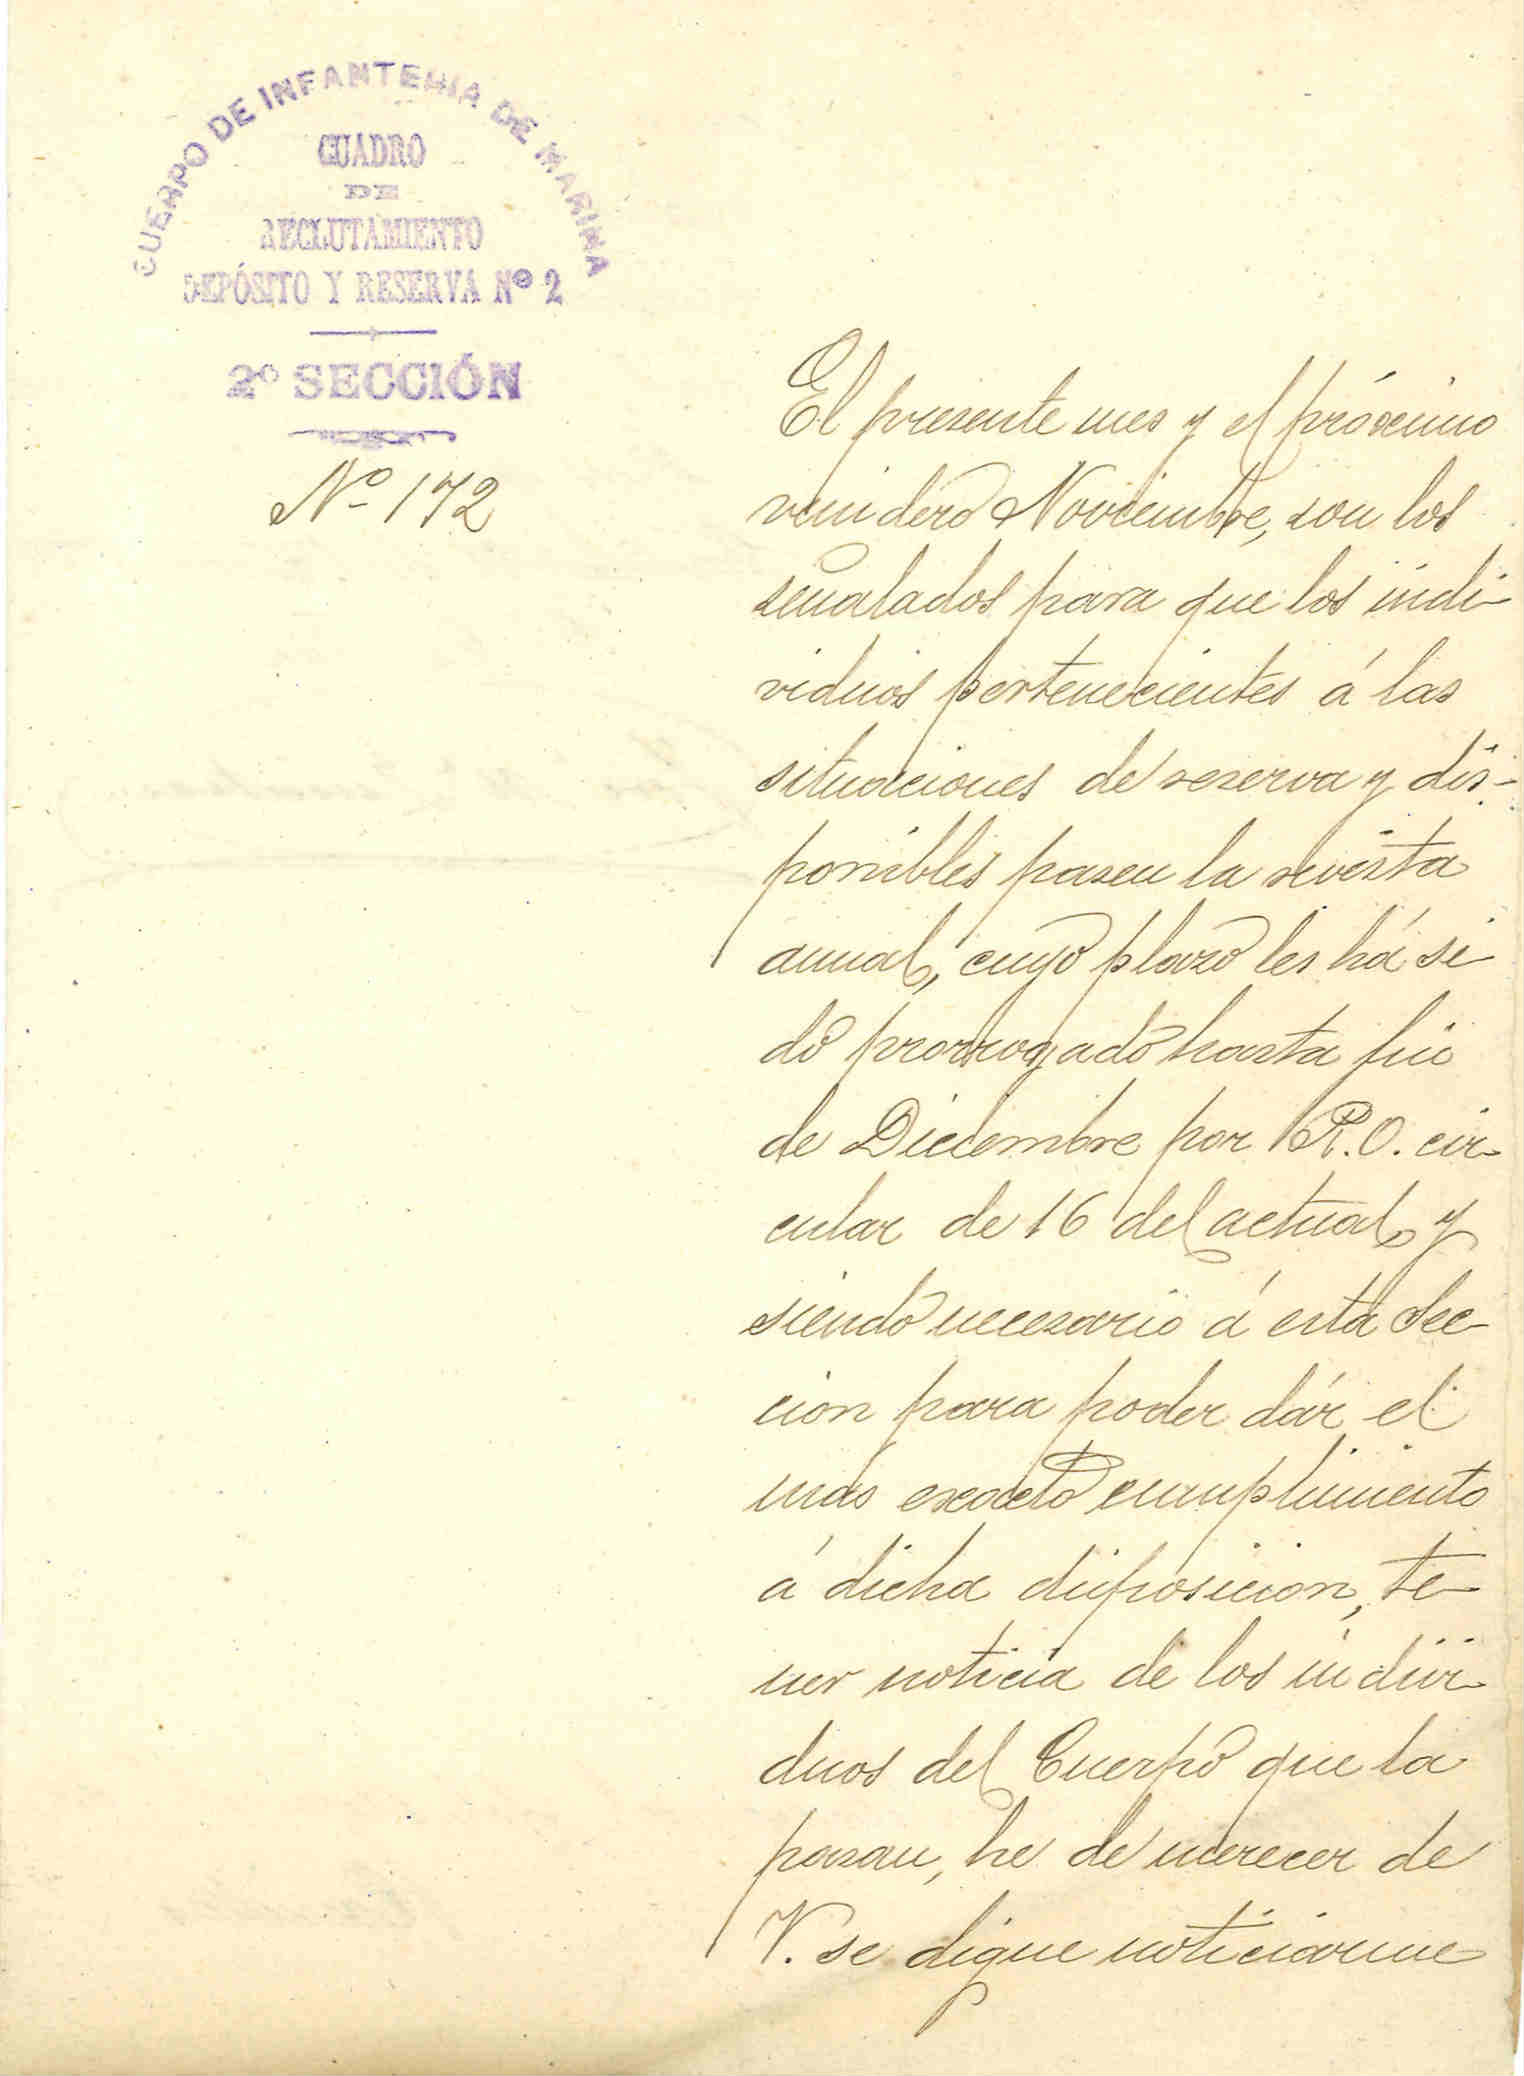 CUERPO DE INFANTERIA DE MARINA
CUADRO
DE
RECLUTAMIENTO
DEPÓSITO Y RESERVA Nº 2
2º SECCIÓN
Nº 172
El presente mes y el próximo
venidero Noviembre, son los
señalados para que los indi-
viduos pertenecientes á las
situaciones de reserva y dis-
ponibles pasen la revista
anual, cuyo plazo les há si-
do prorrogado hasta fin
de Diciembre por R.O. cir-
cular de 16 del actual, y
siendo necesario á esta Sec-
cion para poder dár el
mas exacto cumplimiento
á dicha disposicion, te-
ner noticia de los indivi-
duos del Cuerpo que la
pasan, he de merecer de
V. se digne noticiarme